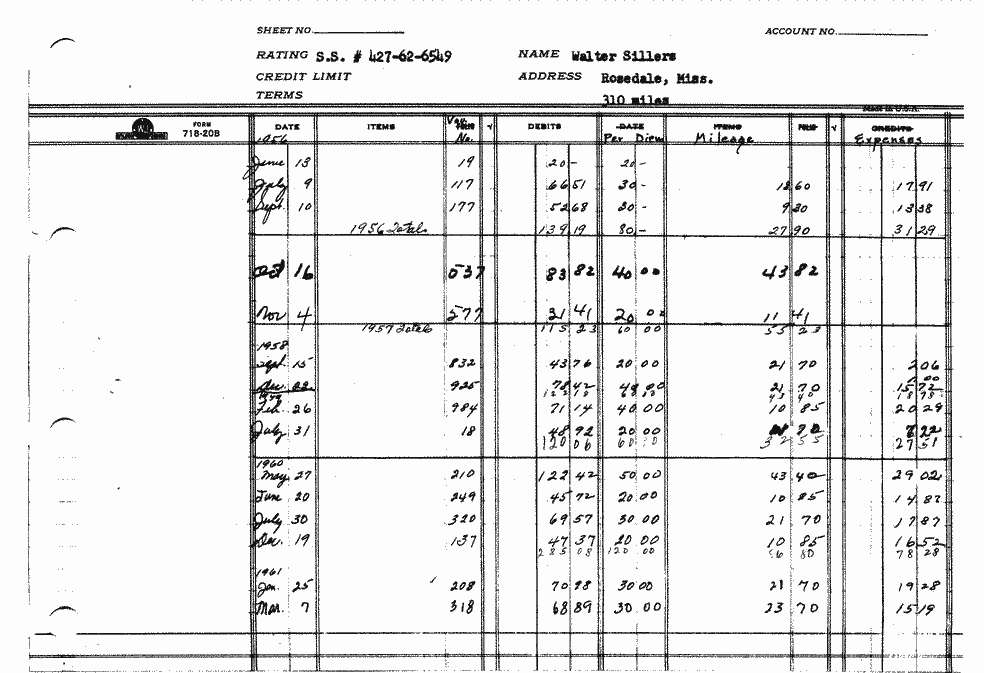 SHEET NO. ACCOUNT NO.
RATING S.S. # 427-62-6549 NAME Walter Sillers
CREDIT LIMIT ADDRESS Rosedale, Miss.
TERMS 310 miles
FORM
718-20B
DATE ITEMS Vou. No. ✓ DEBITS DATE Per Diem ITEMS Mileage FOLIO ✓ CREDITS Expenses
1956
June 13 19 20 - 20 -
July 9 117 66 51 30 - 18 60 17 91
Sept. 10 177 52 68 30 - 9 30 13 38
1956 Totals 139 19 80 - 27 90 31 29
Oct 16 537 83 82 40 00 43 82
Nov 4 577 31 41 20 00 11 41
1957 Totals 115 23 60 00 55 23
1958
Sept. 15 832 43 76 20 00 21 70 2 06
Dec. 22 925 78 42 40 00 21 70 15 72
43 40
1959
Feb. 26 984 71 14 40 00 10 85 20 29
July 31 18 48 92 20 00 7 22
120 06 60 00 32 55 27 51
1960
May 27 210 122 42 50 00 43 40 29 02
June 20 249 45 72 20 00 10 85 14 87
July 30 320 69 57 30 00 21 70 17 87
Dec. 19 137 47 37 20 00 10 85 16 52
285 08 120 00 86 80 78 28
1961
Jan. 25 208 70 98 30 00 21 70 19 28
Mar. 7 318 68 89 30 00 23 70 15 19